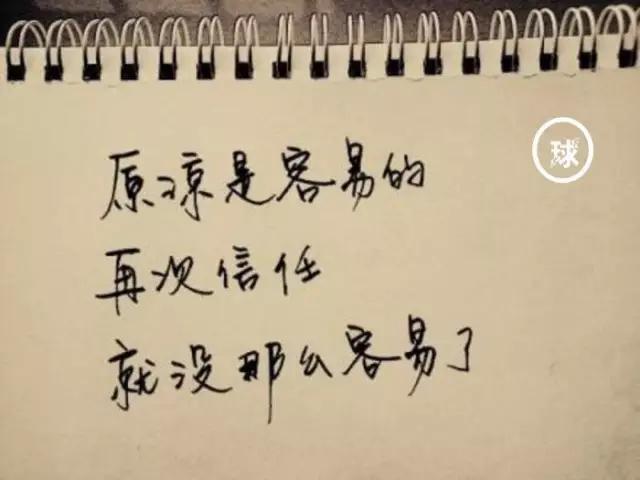 球
原凉是容易的
再次信任
就没那么容易了